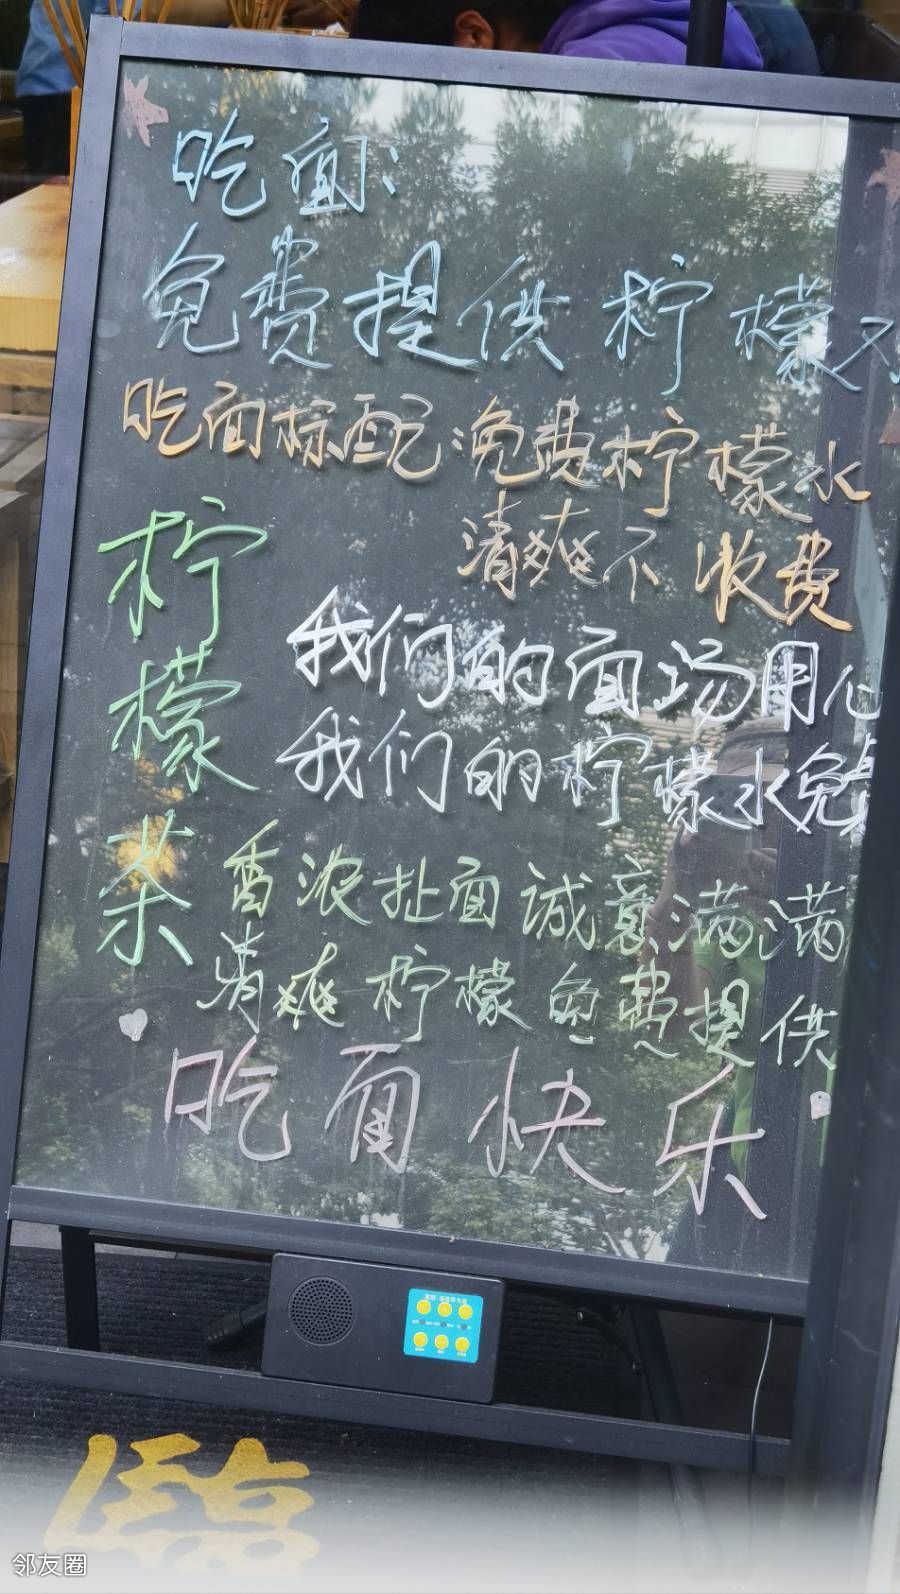 吃面:
免费提供柠檬水
吃面标配免费柠檬水
清爽不收费
柠檬茶
我们的面汤用心
我们的柠檬水免费
香浓扯面诚意满满
清爽柠檬免费提供
吃面快乐
临
邻友圈